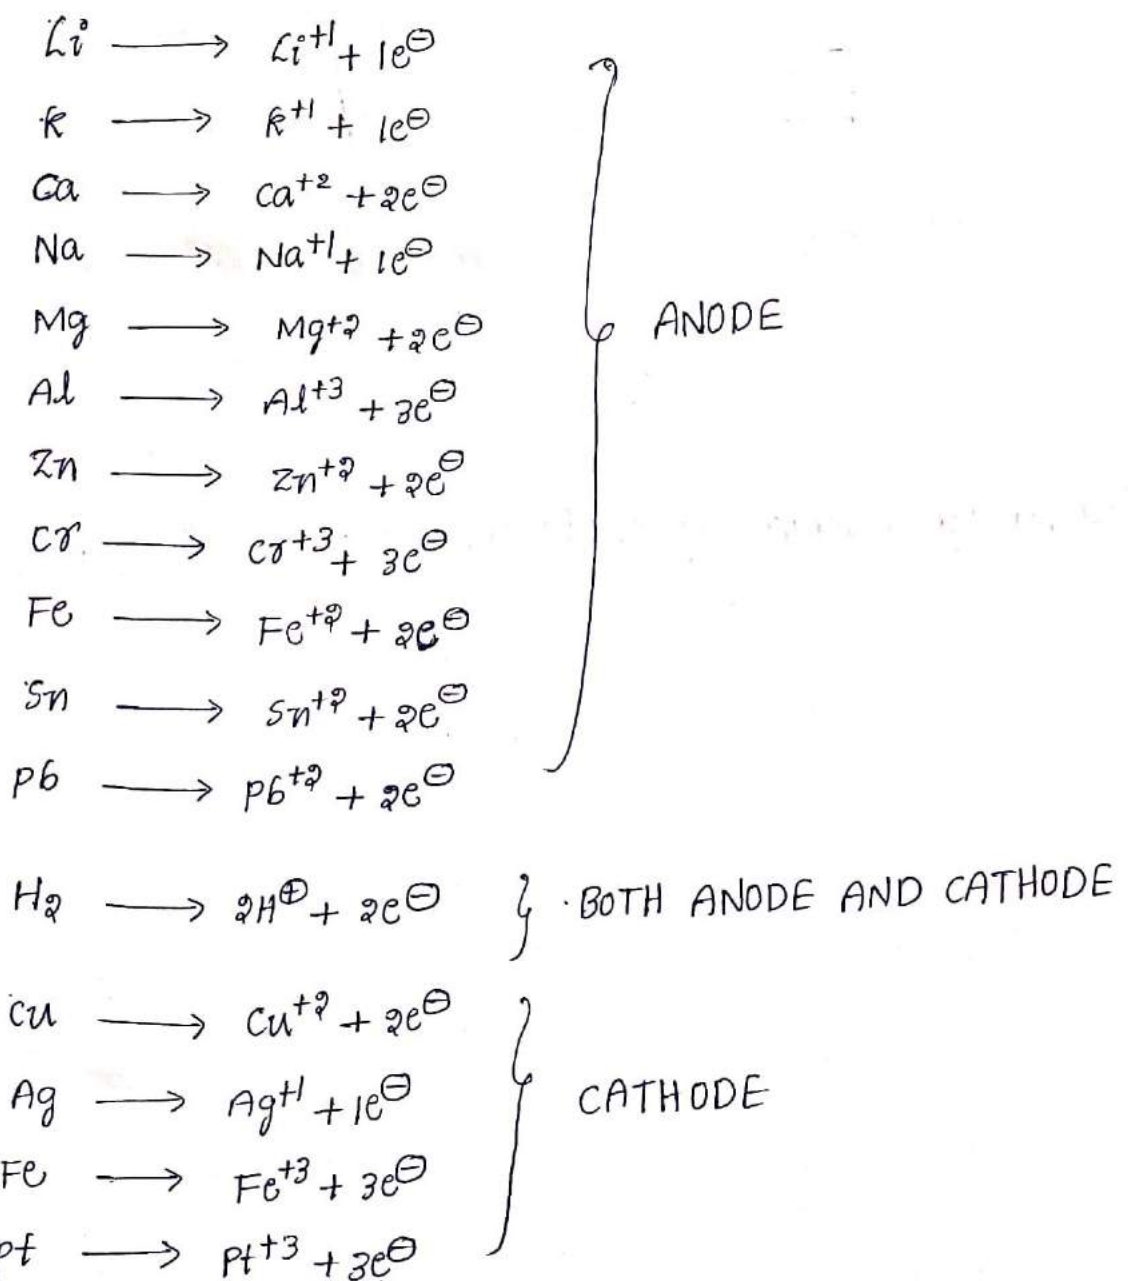 Li ⟶ Li⁺¹ + 1e⊖
K ⟶ K⁺¹ + 1e⊖
Ca ⟶ Ca⁺² + 2e⊖
Na ⟶ Na⁺¹ + 1e⊖
Mg ⟶ Mg⁺² + 2e⊖ ANODE
Al ⟶ Al⁺³ + 3e⊖
Zn ⟶ Zn⁺² + 2e⊖
Cr ⟶ Cr⁺³ + 3e⊖
Fe ⟶ Fe⁺² + 2e⊖
Sn ⟶ Sn⁺² + 2e⊖
Pb ⟶ Pb⁺² + 2e⊖
H₂ ⟶ 2H⊕ + 2e⊖ } BOTH ANODE AND CATHODE
Cu ⟶ Cu⁺² + 2e⊖
Ag ⟶ Ag⁺¹ + 1e⊖ CATHODE
Fe ⟶ Fe⁺³ + 3e⊖
Pt ⟶ Pt⁺³ + 3e⊖